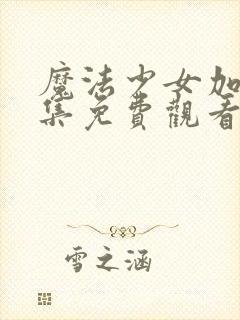 魔法少女加
集免費觀看
雪之涵